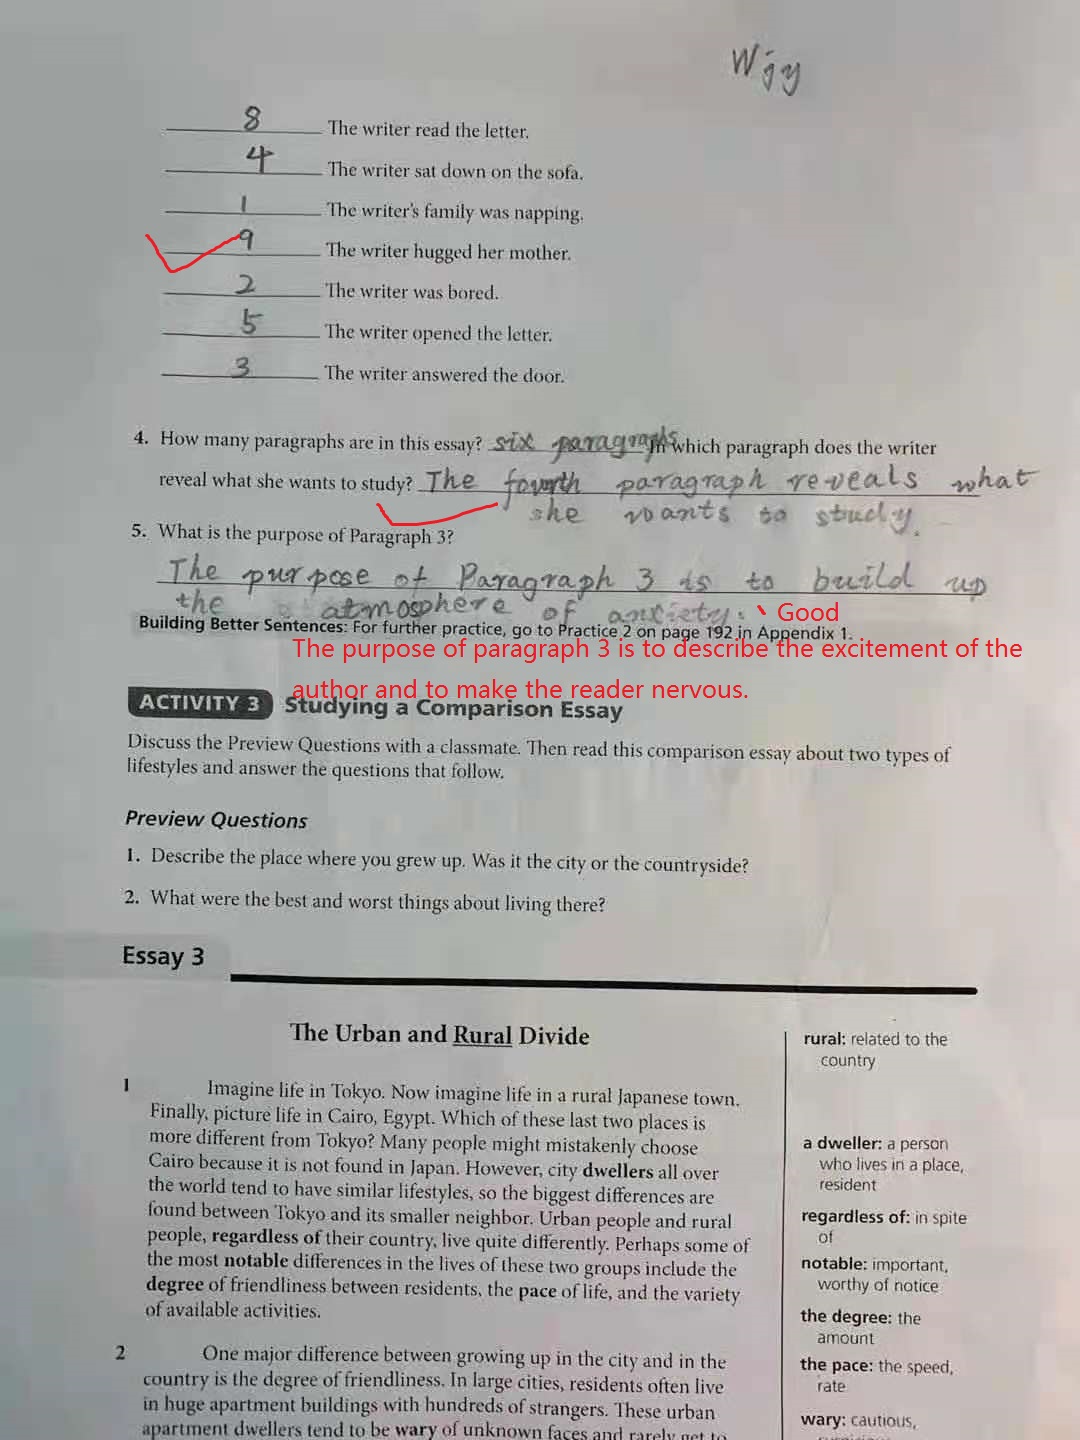 Wjy
8 The writer read the letter.
4 The writer sat down on the sofa.
1 The writer's family was napping.
9 The writer hugged her mother.
2 The writer was bored.
5 The writer opened the letter.
3 The writer answered the door.
4. How many paragraphs are in this essay? six paragraphs In which paragraph does the writer
reveal what she wants to study? The fourth paragraph reveals what
she wants to study.
5. What is the purpose of Paragraph 3?
The purpose of Paragraph 3 is to build up
the atmosphere of anxiety. Good
Building Better Sentences: For further practice, go to Practice 2 on page 192 in Appendix 1.
The purpose of paragraph 3 is to describe the excitement of the
author and to make the reader nervous.
ACTIVITY 3 Studying a Comparison Essay
Discuss the Preview Questions with a classmate. Then read this comparison essay about two types of
lifestyles and answer the questions that follow.
Preview Questions
1. Describe the place where you grew up. Was it the city or the countryside?
2. What were the best and worst things about living there?
Essay 3
The Urban and Rural Divide
1 Imagine life in Tokyo. Now imagine life in a rural Japanese town.
Finally, picture life in Cairo, Egypt. Which of these last two places is
more different from Tokyo? Many people might mistakenly choose
Cairo because it is not found in Japan. However, city dwellers all over
the world tend to have similar lifestyles, so the biggest differences are
found between Tokyo and its smaller neighbor. Urban people and rural
people, regardless of their country, live quite differently. Perhaps some of
the most notable differences in the lives of these two groups include the
degree of friendliness between residents, the pace of life, and the variety
of available activities.
2 One major difference between growing up in the city and in the
country is the degree of friendliness. In large cities, residents often live
in huge apartment buildings with hundreds of strangers. These urban
apartment dwellers tend to be wary of unknown faces and rarely get to
rural: related to the
country
a dweller: a person
who lives in a place,
resident
regardless of: in spite
of
notable: important,
worthy of notice
the degree: the
amount
the pace: the speed,
rate
wary: cautious,